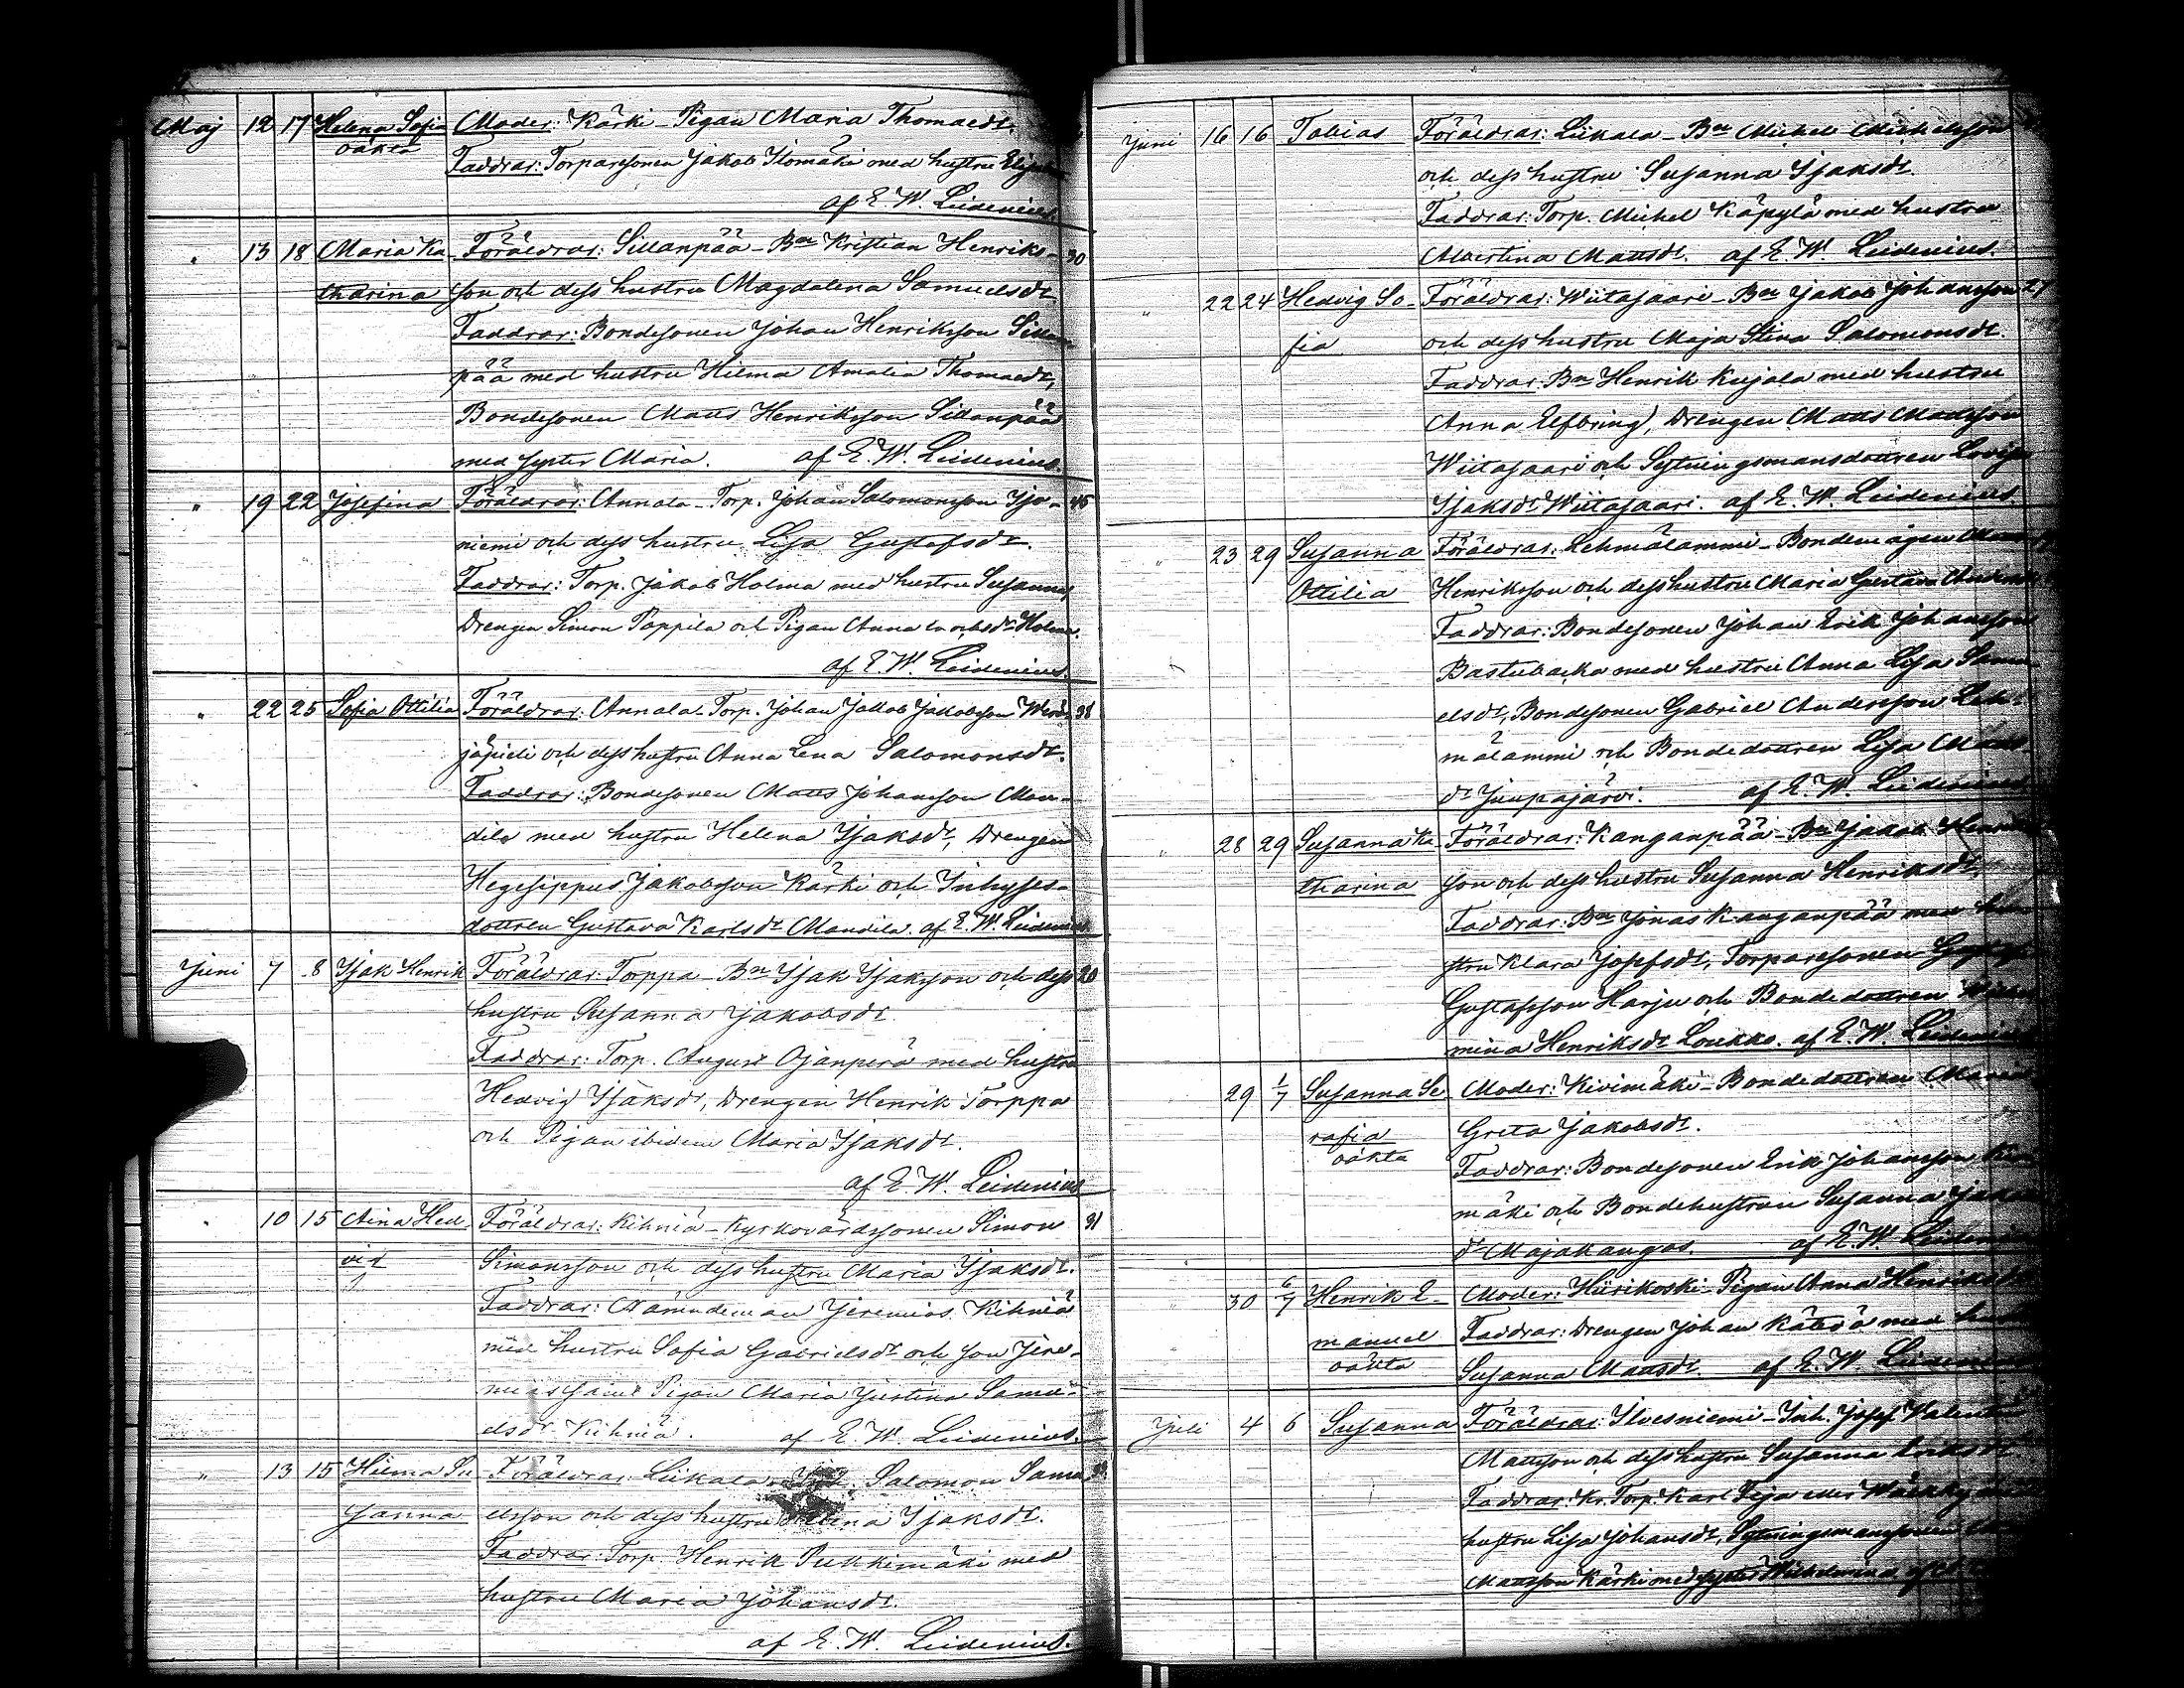 Maj 12 17 Helena Sofia Moder: Kärki - Pigan Maria Thomaedr.
oäkta Faddrar: Torparesonen Jakob Ilomäki med hustru
af E. W. Leidenius.
" 13 18 Maria Ka- Föräldrar: Sillanpää - Bn Kristian Henriks- 30
tharina son och dess hustru Magdalena Samuelsdr
Faddrar: Bondesonen Johan Henriksson Sillan-
pää med hustru Hilma Amalia Thomaedr,
Bondesonen Matts Henriksson Sillanpää
med syster Maria. af E. W. Leidenius.
" 19 22 Josefina Föräldrar: Annala - Torp. Johan Salomonsson Iso- 45
niemi och dess hustru Lisa Gustafsdr.
Faddrar: Torp. Jakob Holma med hustru Susanna,
Drengen Simon Pappila och Pigan Anna Holma.
af E. W. Leidenius.
" 22 25 Sofia Ottilia Föräldrar: Annala - Torp. Johan Jakob Jakobsson 38
och dess hustru Anna Lena Salomonsdr.
Faddrar: Bondesonen Matts Johansson Man-
dila med hustru Helena Isaksdr, Drengen
Hegesippus Jakobsson Kärki och Inhyses-
dottren Gustava Karlsdr Mandila. af E. W. Leidenius
Juni 7 8 Isak Henrik Föräldrar: Torppa - Bn Isak Isaksson och dess 20
hustru Susanna Jakobsdr.
Faddrar: Torp. August Ojanperä med hustru
Hedvig Isaksdr, Drengen Henrik Torppa
och Pigan ibidem Maria Isaksdr.
af E. W. Leidenius
" 10 15 Aina Hed- Föräldrar: Kihniä - Kyrkovärdssonen Simon 31
vig Simonsson och dess hustru Maria Isaksdr.
Faddrar: Nämndeman Jeremias Kihniä
med hustru Sofia Gabrielsdr och son Jere-
mias samt Pigan Maria Justina Samu-
elsdr Kihniä. af E. W. Leidenius.
" 13 15 Hilma Su- Föräldrar: Liikala - Salomon Samu-
sanna elsson och dess hustru Isaksdr.
Faddrar: Torp. Henrik Pukkimäki med
hustru Maria Johansdr.
af E. W. Leidenius.
Juni 16 16 Tobias Föräldrar: Liikala - Bn Mickel Mickelsson
och dess hustru Susanna Isaksdr.
Faddrar: Torp. Mickel Käpylä med hustru
Albertina Mattsdr. af E. W. Leidenius.
" 22 24 Hedvig So- Föräldrar: Wiitasaari - Bn Jakob Johansson 27
fia och dess hustru Maja Stina Salomonsdr.
Faddrar: Bn Henrik Kujala med hustru
Anna Elfbring, Drengen Matts Mattsson
Wiitasaari och Sytningsmansdottren Lovisa
Isaksdr Wiitasaari. af E. W. Leidenius
" 23 29 Susanna Föräldrar: Lehmälammi - Bondemågen
Ottilia Henriksson och dess hustru Maria Gustava
Faddrar: Bondesonen Johan Erik Johansson
Bastubacka med hustru Anna Lisa Samu-
elsdr, Bondesonen Gabriel Andersson Leh-
mälammi och Bondedottren Lisa Matts-
dr Juupajärvi. af E. W. Leidenius
" 28 29 Susanna Ka- Föräldrar: Kanganpää - Bn Jakob Henriks-
tharina son och dess hustru Susanna Henriksdr.
Faddrar: Bn Jonas Kanganpää med hu-
stru Klara Josefsdr, Torparesonen
Gustafsson Harju och Bondedottren
mina Henriksdr Loukko. af E. W. Leidenius
29 1/7 Susanna Se- Moder: Kivimäki - Bondedottren Maria
rafia Greta Jakobsdr.
oäkta Faddrar: Bondesonen Erik Johansson Kivi-
mäki och Bondehustrun Susanna
dr Majakangas. af E. W. Leidenius
" 30 6/7 Henrik E- Moder: Hiirikoski - Pigan Anna Henriksdr
manuel Faddrar: Drengen Johan Kätkö med
oäkta Susanna Mattsdr. af E. W. Leidenius
Juli 4 6 Susanna Föräldrar: Ilvesniemi - Inh. Josef Valentin
Mattsson och dess hustru Susanna Eriksdr
Faddrar: Kr. Torp. Karl
hustru Lisa Johansdr, Sytningsmanssonen
Mattsson Kärki med syster Wilhelmina af